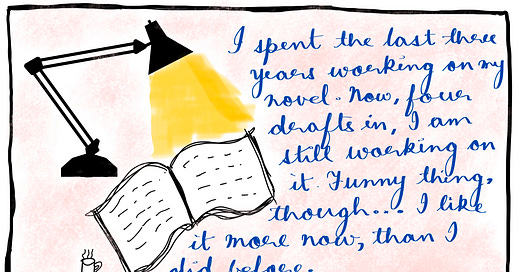 I spent the last three
years working on my
novel. Now, four
drafts in, I am
still working on
it. Funny thing,
though... I like
it more now, than I
did before.